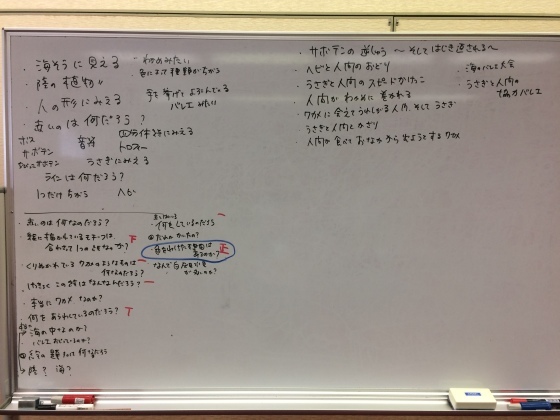 ・海そうに見える
・陸の植物〃
・人の形にみえる
・赤いのは何だろう?
わかめみたい
色によって種類がちがう
手を挙げてよろこんでる
バレエみたい
ボス
サボテン
音符
四分休符にみえる
トロフィー
うさぎにみえる
ラインは何だろう?
1つだけちがう
ヘビ
・赤いのは何なのだろう?
・顔に描かれているモチーフは、
合わせて1つの
なのか?
・くりぬかれているワカメのようなものは
何なのだろう?
・けっきょくこの絵はなんなんだろう?
・本当にワカメなのか?
・何をあらわしているのだろう?
海の中なのか?
バレエおどっているのか?
この題って何だろう
→陸?海?
何をしているのだろう
だれがかいたの?
・色をわけた理由は
あるのか? 正
・なんで白
・サボテンの逆しゅう 〜そしてはじき返される〜
・ヘビと人間のおどり
・うさぎと人間のスピードかけっこ
・人間がわかめに巻かれる
・ワカメに会えてうれしがる人間、そしてうさぎ
・うさぎと人間とかざり
・人間が食べておなかから出ようとするワカメ
・海のバレエ大会
・うさぎと人間の
協力バレエ